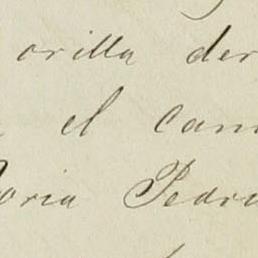 orilla der
el cam
oria Pedr